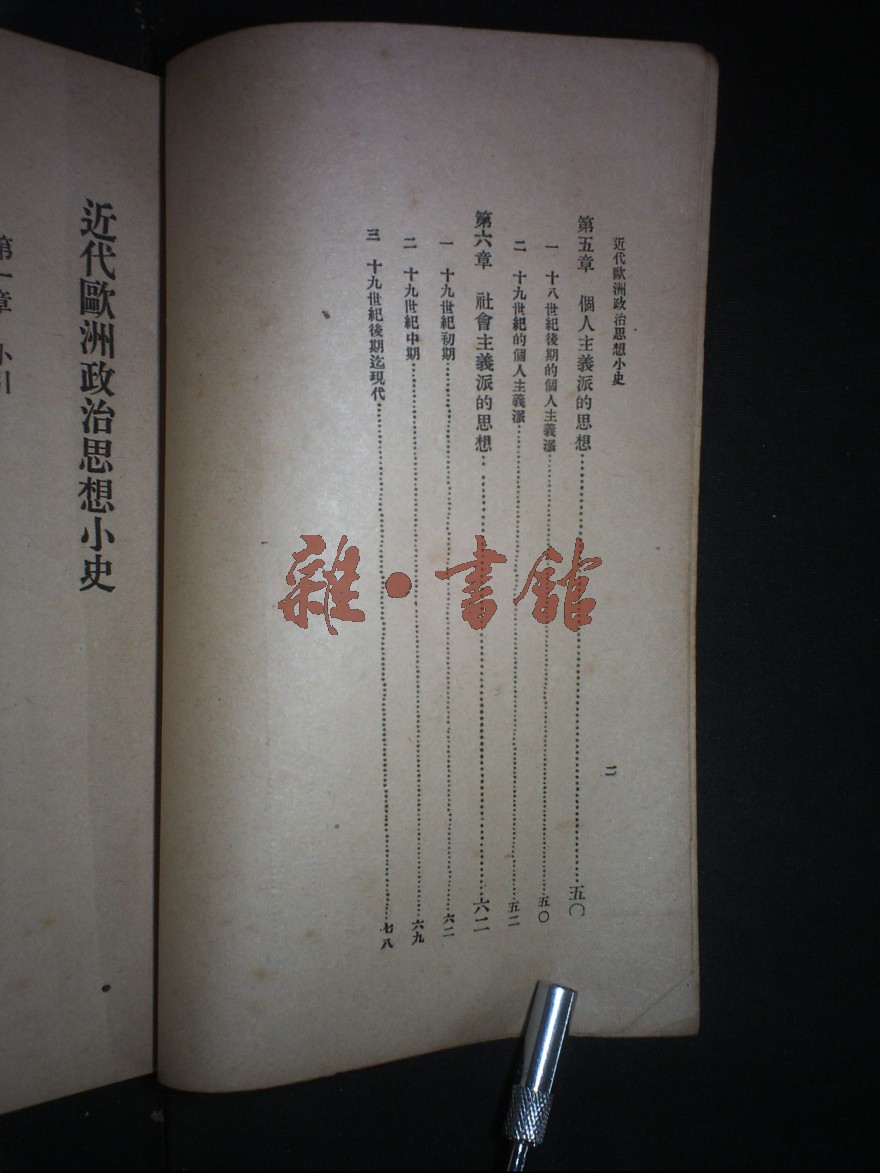 近代歐洲政治思想小史
二
第五章 個人主義派的思想 五〇
一 十八世紀後期的個人主義派 五〇
二 十九世紀的個人主義派 五二
第六章 社會主義派的思想 六二
一 十九世紀初期 六二
二 十九世紀中期 六九
三 十九世紀後期迄現代 七八
近代歐洲政治思想小史
第一章 小引
雜·書館